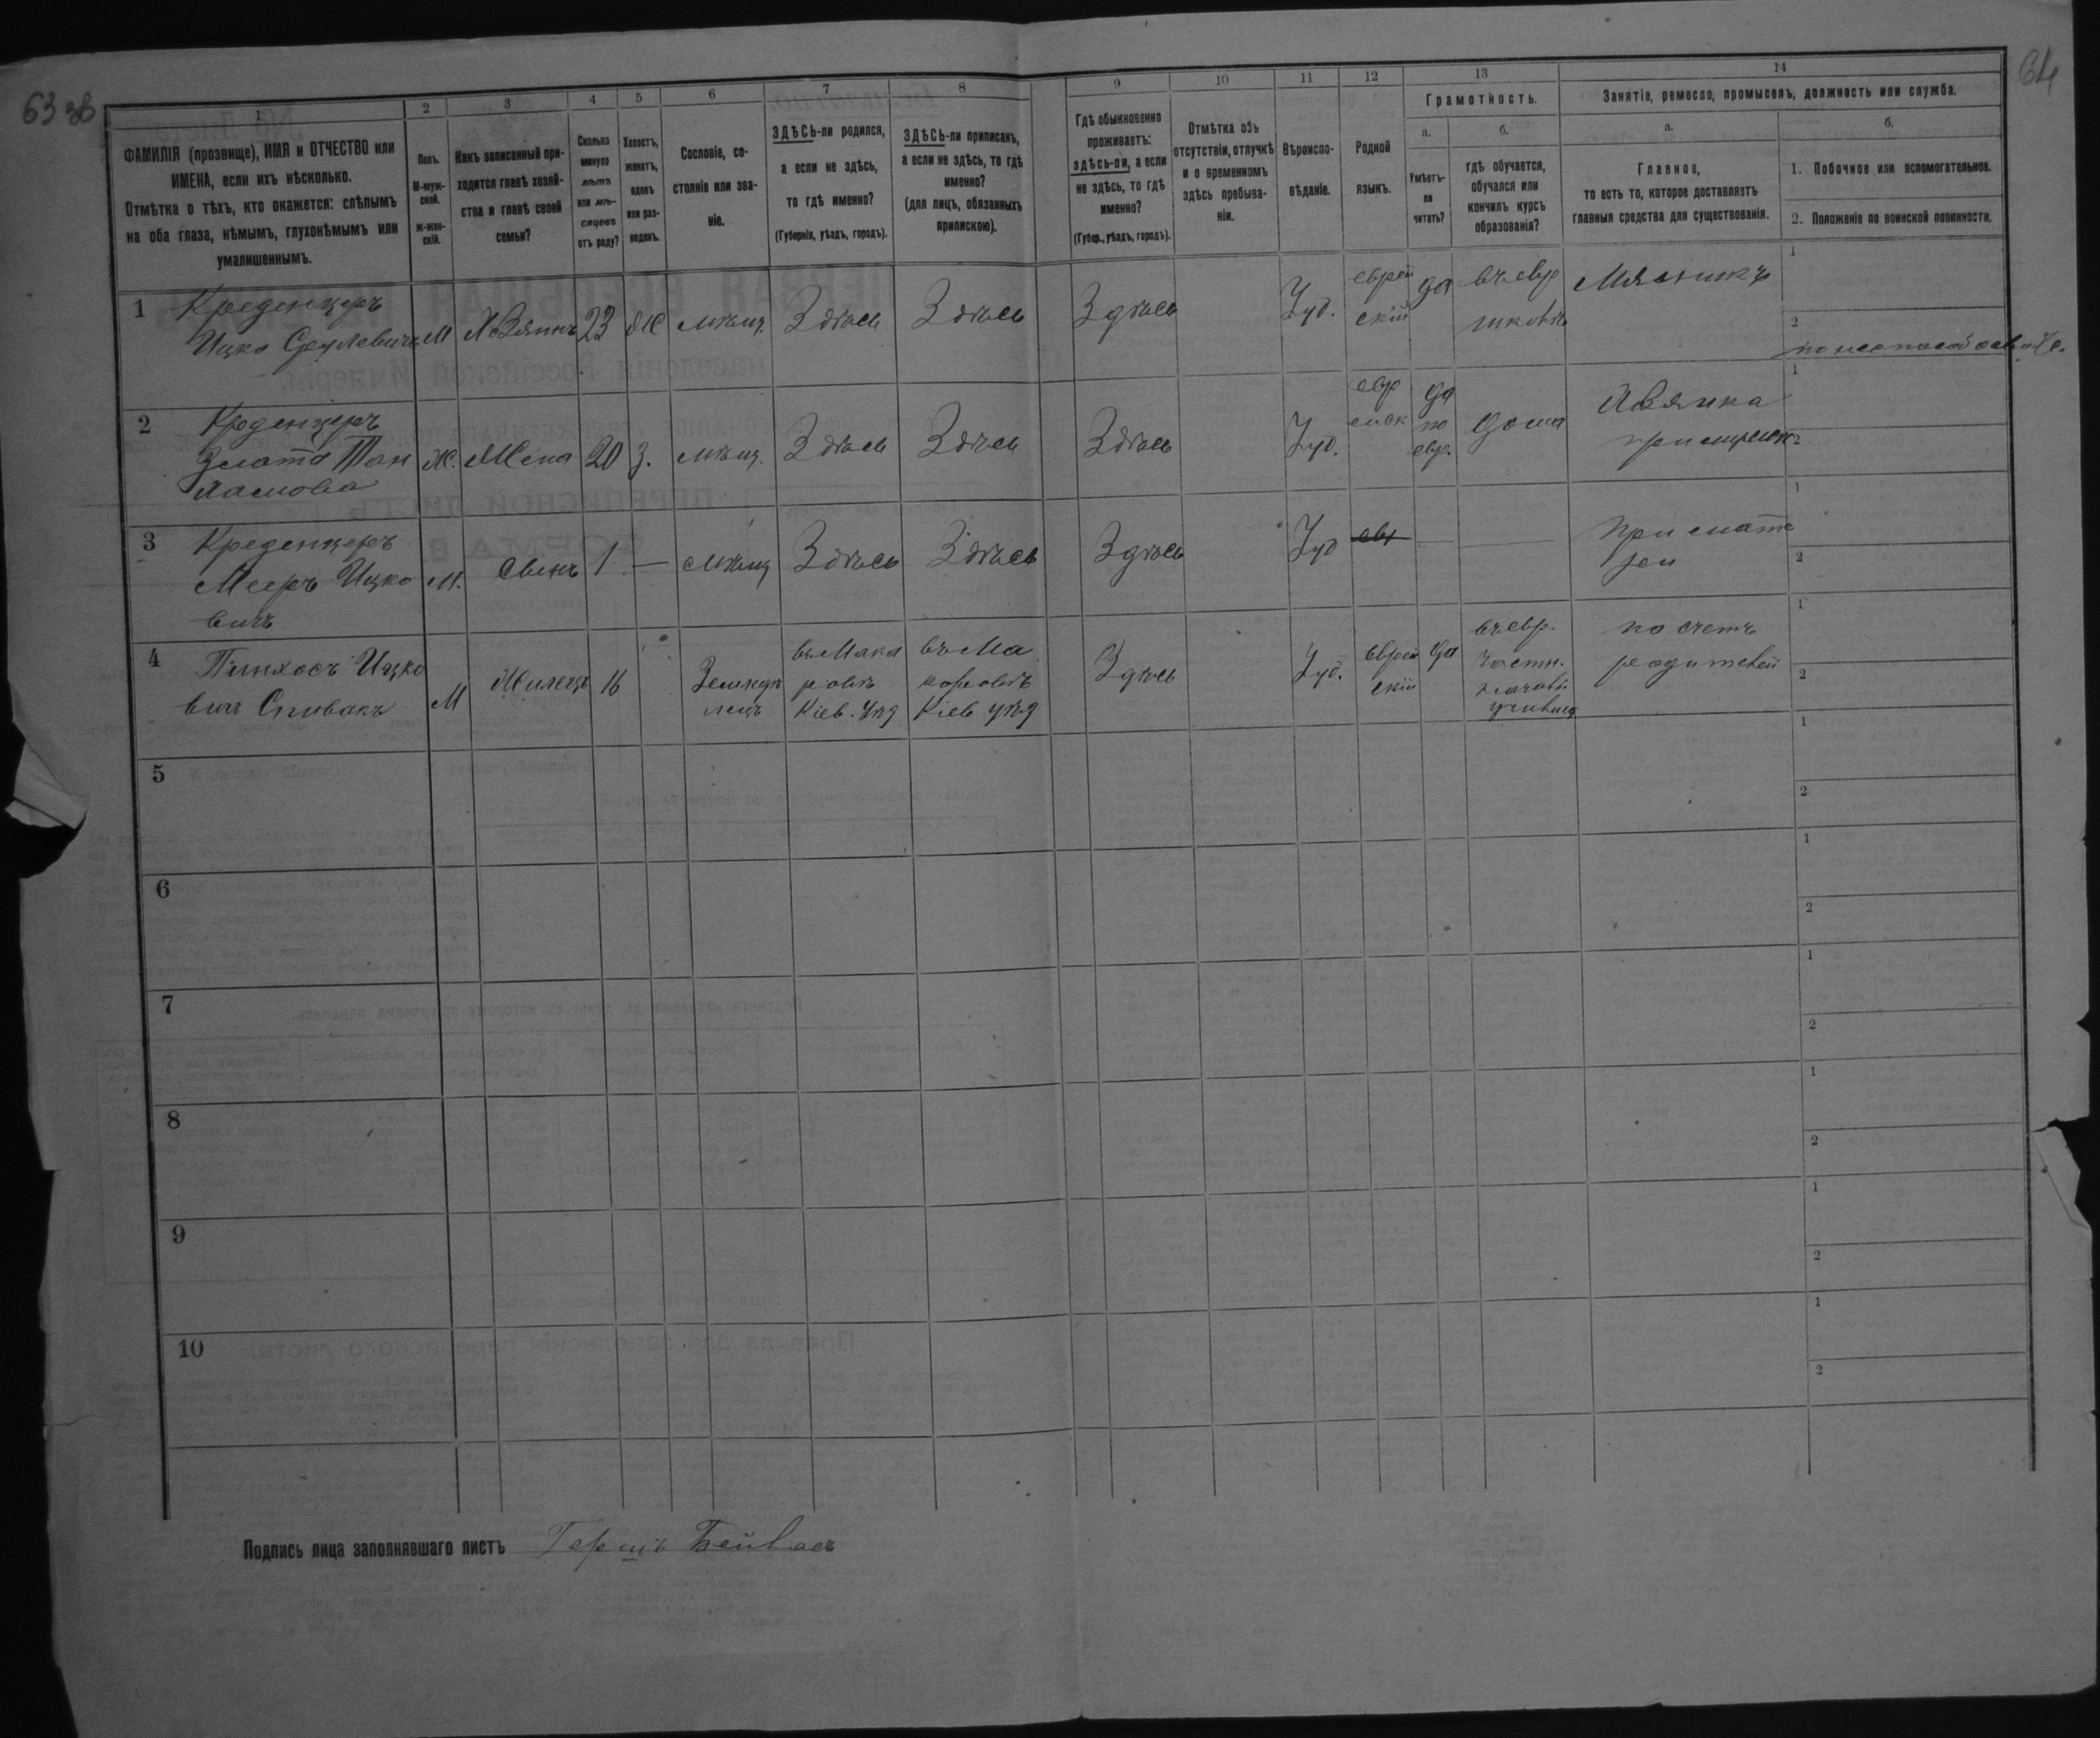 63 об
64
1
2
3
4
5
6
7
8
9
10
11
12
13
14
ФАМИЛІЯ (прозвище), ИМЯ и ОТЧЕСТВО или
ИМЕНА, если ихъ нѣсколько.
Отмѣтка о тѣхъ, кто окажется: слѣпымъ
на оба глаза, нѣмымъ, глухонѣмымъ или
умалишеннымъ.
Полъ.
М-муж-
ской.
Ж-жен-
скій.
Какъ записанный при-
ходится главѣ хозяй-
ства и главѣ своей
семьи?
Сколько
минуло
лѣтъ
или мѣ-
сяцевъ
отъ роду?
Холостъ,
женатъ,
вдовъ
или раз-
веденъ.
Сословіе, со-
стояніе или зва-
ніе.
ЗДѢСЬ-ли родился,
а если не здѣсь,
то гдѣ именно?
(Губернія, уѣздъ, городъ).
ЗДѢСЬ-ли приписанъ,
а если не здѣсь, то гдѣ
именно?
(для лицъ, обязанныхъ
припискою).
Гдѣ обыкновенно
проживаетъ:
здѣсь-ли, а если
не здѣсь, то гдѣ
именно?
(Губер., уѣздъ, городъ).
Отмѣтка объ
отсутствіи, отлучкѣ
и о временномъ
здѣсь пребыва-
ніи.
Вѣроиспо-
вѣданіе.
Родной
языкъ.
Грамотность.
а.
Умѣетъ-
ли
читать?
б.
гдѣ обучается,
обучался или
кончилъ курсъ
образованія?
Занятіе, ремесло, промыселъ, должность или служба.
а.
Главное,
то есть то, которое доставляетъ
главныя средства для существованія.
б.
1. Побочное или вспомогательное.
2. Положеніе по воинской повинности.
1
Креденцеръ
Ицко
М
Хозяинъ
23
Ж
мѣщ.
Здѣсь
Здѣсь
Здѣсь
Іуд.
еврей
скій
да
въ евр
школѣ
Мясникъ
1
2
2
Креденцеръ
Злата
Ж.
Жена
20
З.
мѣщ.
Здѣсь
Здѣсь
Здѣсь
Іуд.
евр
ейск
да
по
евр.
дома
Хозяйка
1
3
Креденцеръ
Мееръ Ицко
вичъ
М.
Сынъ
1
—
мѣщ
Здѣсь
Здѣсь
Здѣсь
Іуд
евр
—
—
При мате
ри
1
2
4
Пинхосъ Ицко
вичъ Спивакъ
М
Жилецъ
16
Земледѣ
лецъ
въ Мака
ровѣ
Кіев. уѣзд
въ Ма
каровѣ
Кіев уѣзд
Здѣсь
Іуд.
еврей
скій
да
въ евр.
частн.
училищ
на счетъ
родителей
1
2
5
1
2
6
1
2
7
1
2
8
1
2
9
1
2
10
1
2
Подпись лица заполнявшаго листъ Гершъ